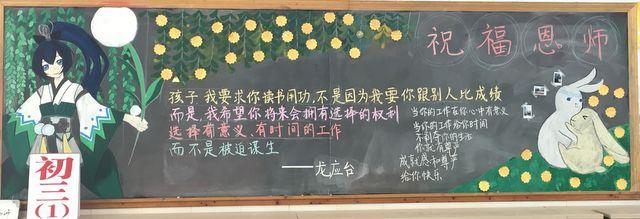 祝福恩师
孩子,我要求你读书用功,不是因为我要你跟别人比成绩
而是,我希望你将来会拥有选择的权利
选择有意义、有时间的工作
而不是被迫谋生
——龙应台
当你的工作在你心中有意义
当你的工作给你时间
不剥夺你的生活
你就有尊严
成就感和尊严
给你快乐
初三(1)